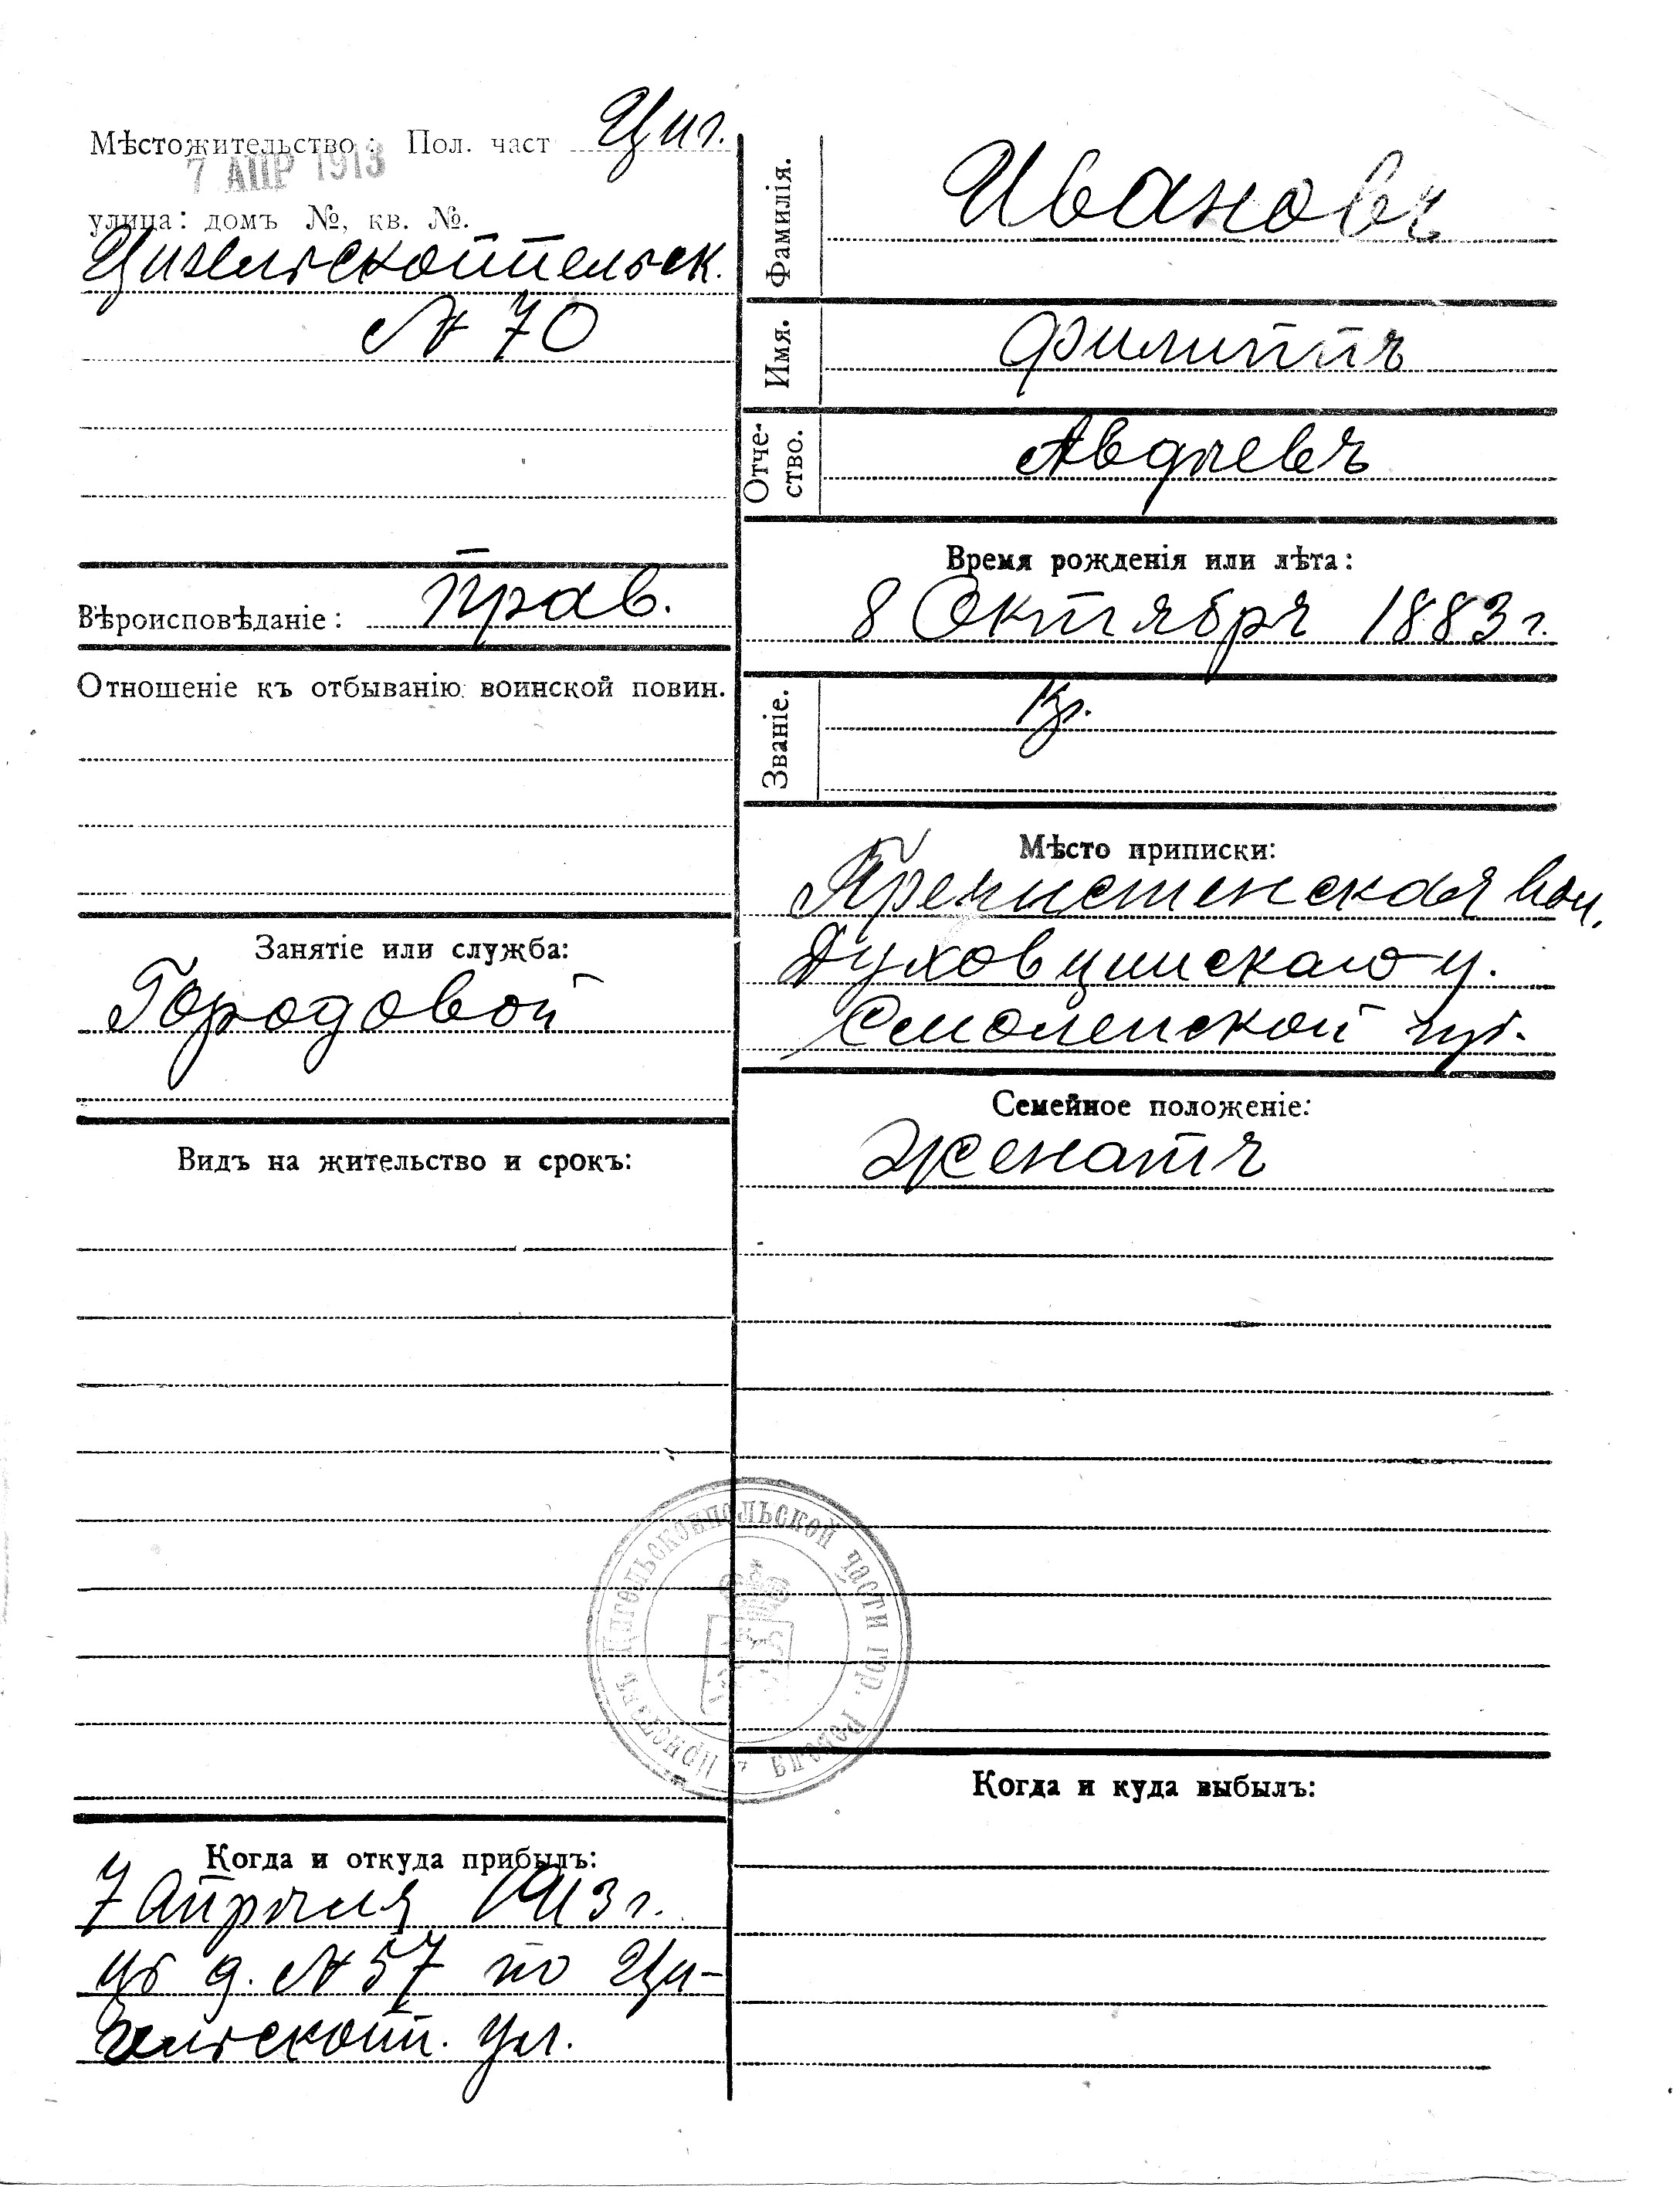 Мѣстожительство: Пол. част Циг.
7 АПР 1913
улица: домъ №, кв. №.
Цигельскоппельск.
№ 70
Вѣроисповѣданіе: прав.
Отношеніе къ отбыванію воинской повин.
Занятіе или служба:
Городовой
Видъ на жительство и срокъ:
Когда и откуда прибылъ:
7 Апрѣля 1913 г.
изъ д. № 57 по Ци-
гельскопп. ул.
Фамилія. Ивановъ
Имя. Филиппъ
Отче-
ство. Авдѣевъ
Время рожденія или лѣта:
8 Октября 1883 г.
Званіе. кр.
Мѣсто приписки:
Пречистенская вол.
Духовщинскаго у.
Смоленской губ.
Семейное положеніе:
Женатъ
Приставъ Цигельскоппольской части гор. Ревеля
Когда и куда выбылъ: